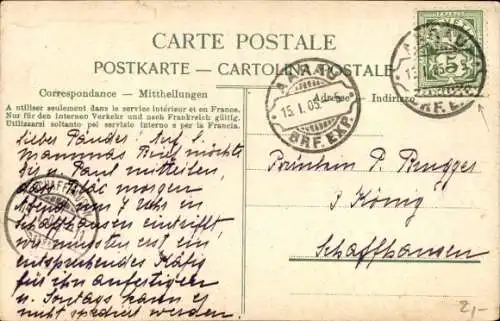 CARTE POSTALE
POSTKARTE — CARTOLINA POSTALE
Correspondance - Mittheilungen
Adresse - Indirizzo
A utiliser seulement dans le service intérieur et en France.
Nur für den Internen Verkehr und nach Frankreich gültig.
Utilizzarsi soltanto pel servizio interno e per la Francia.
AARAU
15.I.05.
BRF. EXP.
AARAU
BRF. EXP.
5
Auf
Mammas Brief möchte
Paul mitteilen,
dass morgen
Abend um 7 Uhr in
Schaffhausen eintrifft
wir müssten erst ein
entsprechendes Käfig
für ihn anfertigen
u. Sonntags kann es
nicht spediert werden.
Fräulein P. Brugger
König
Schaffhausen
2,-